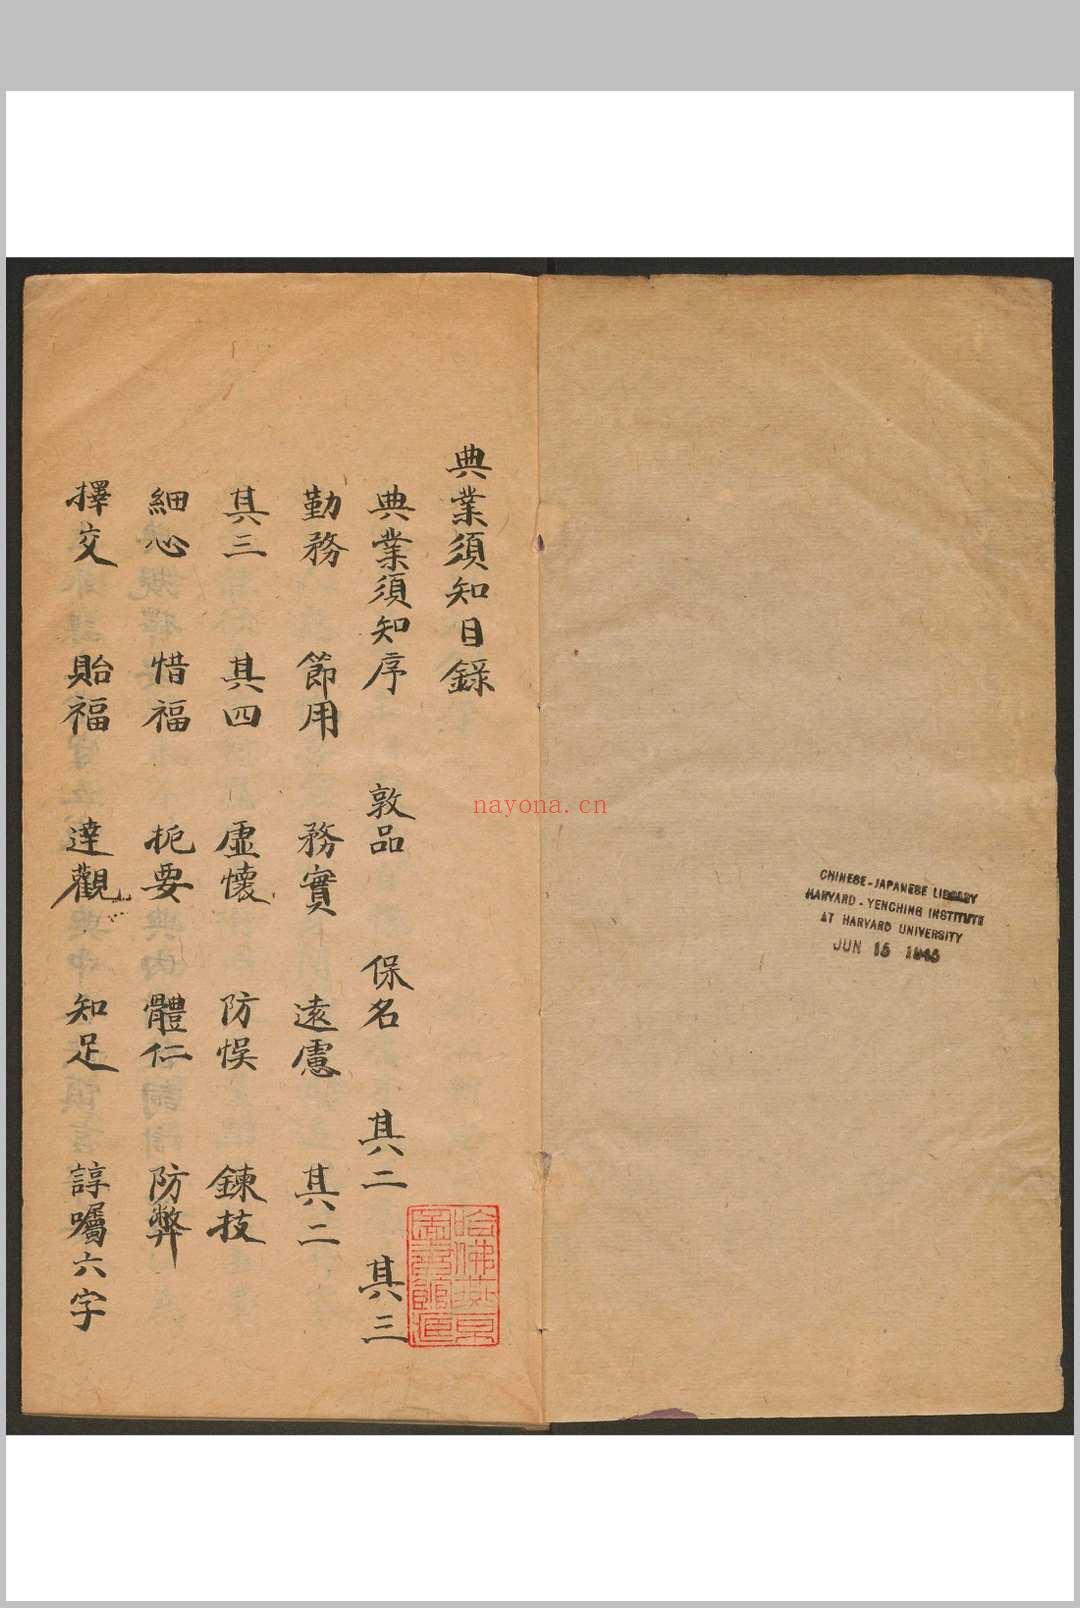 典業須知目錄
典業須知序 敦品 保名 其二 其三
勤務 節用 務實 遠慮 其二
其三 其四 虛懷 防悞 鍊技
細心 惜福 扼要 體仁 防弊
擇交 貽福 達觀 知足 諄囑六字
哈佛燕京
圖書館藏
nayona.cn
CHINESE-JAPANESE LIBRARY
HARVARD-YENCHING INSTITUTE
AT HARVARD UNIVERSITY
JUN 15